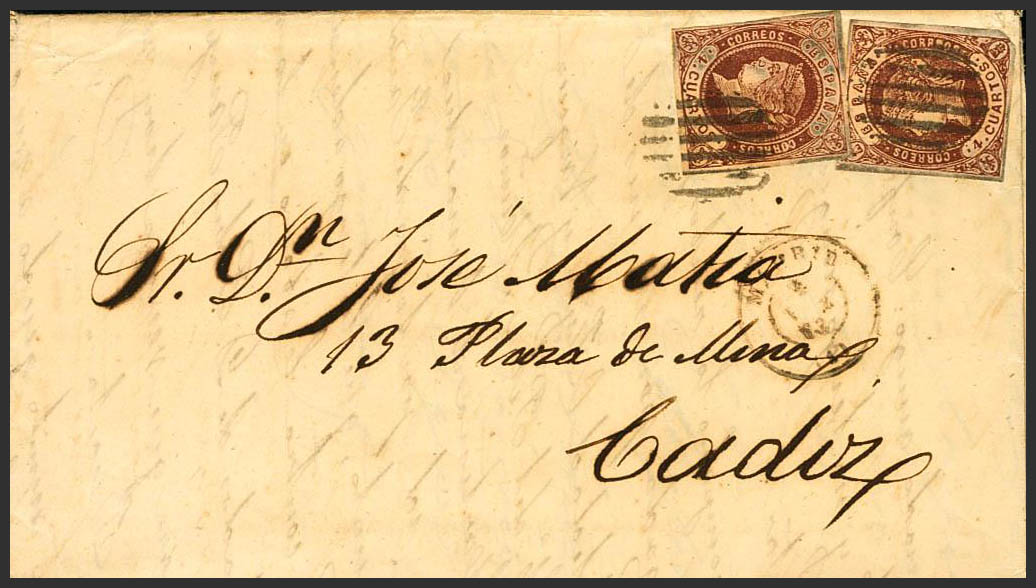 CORREOS ESPAÑA 4 CUARTOS CORREOS
ESPAÑA CORREOS 4 CUARTOS CORREOS
Sr. Dn José Matia
MADRID
13 Plaza de Mina
Cadiz